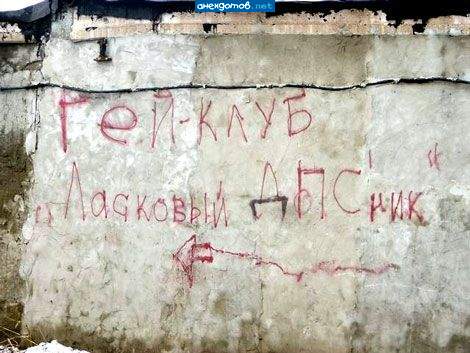 анекдотов.net
Гей-клуб
"Ласковый ДПС'ник"